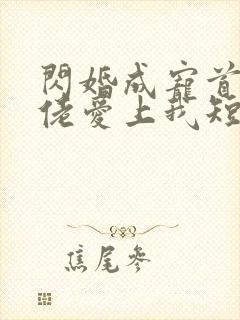 閃婚成寵首
佬愛上我短
焦尾參